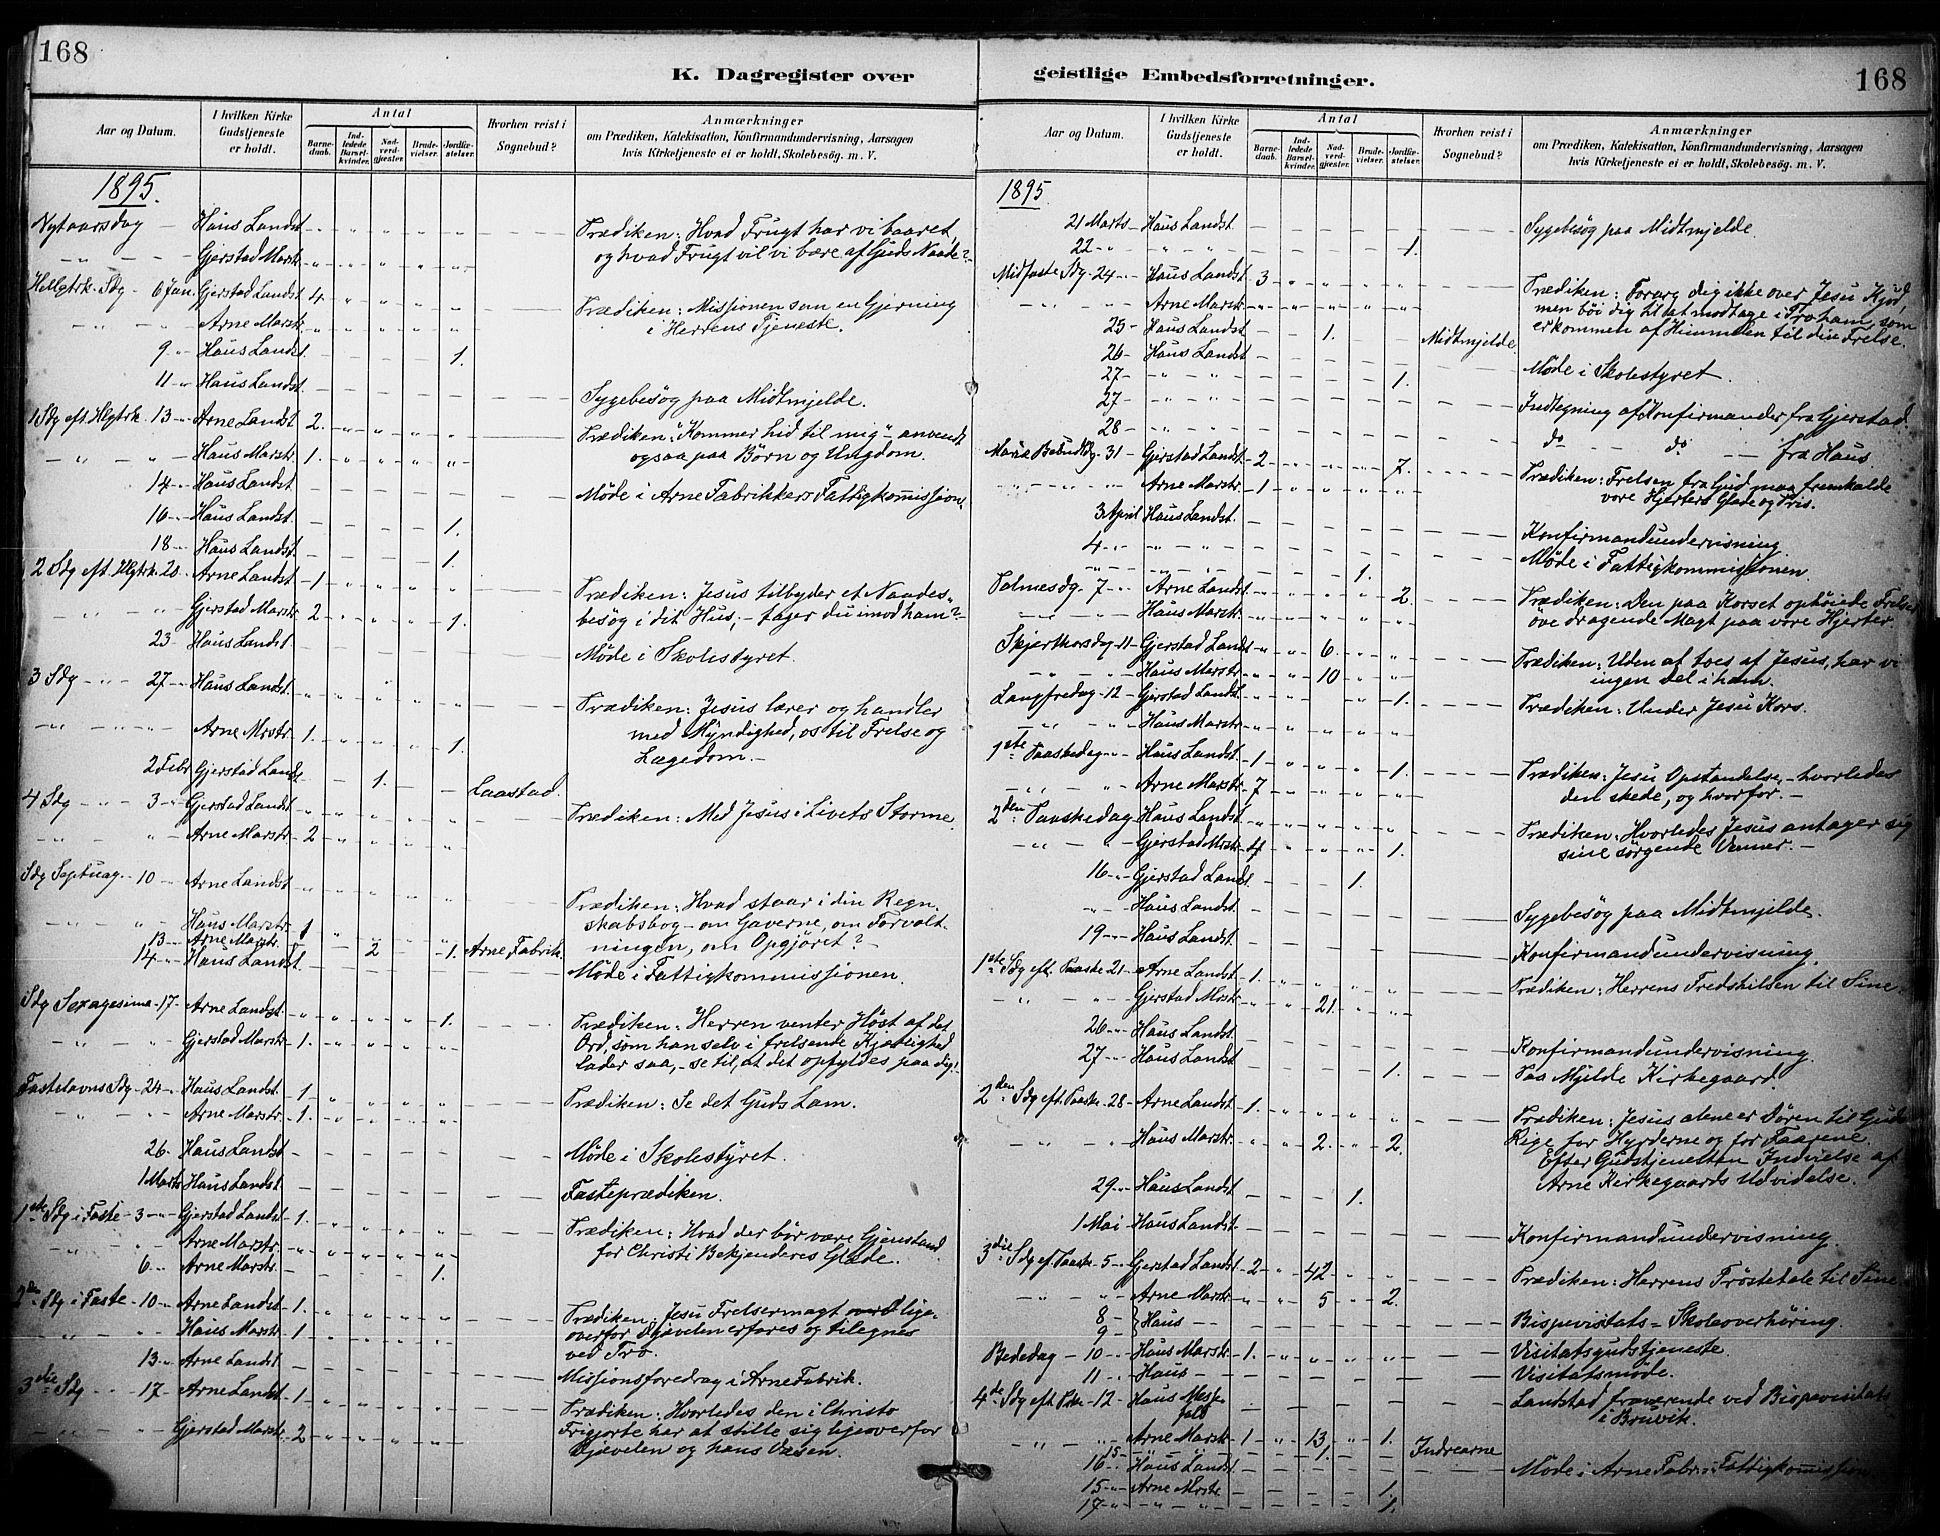 168
K. Dagregister over
Aar og Datum.
I hvilken Kirke Gudstjeneste er holdt.
Antal
Barnedaab.
Indledede Barselkvinder.
Nadverdgjester.
Brudevielser.
Jordfæstelser.
Hvorhen reist i Sognebud?
Anmærkninger
om Prædiken, Katekisation, Konfirmandundervisning, Aarsagen
hvis Kirketjeneste ei er holdt, Skolebesøg. m. V.
1895.
Nytaarsdag — Haus Landst. Prædiken: Hvad Frugt har vi baaret,
Gjerstad Marst. og hvad Frugt vil vi bære af Guds Naade?
Helligtrk. Sdg — 6 Jan. Gjerstad Landst. 4. Prædiken: Missjonen som en Gjerning
Arne Marstr. i Herrens Tjeneste.
9 " Haus Landst. 1.
11 " Haus Landst. Sygebesøg paa Midtmjelde.
1 Sdg eft. Hlgtrk. 13 " Arne Landst. 2. Prædiken: "Kommer hid til mig" — anvendt
Haus Marstr. 1. ogsaa paa Børn og Ungdom.
14 " Haus Landst. Møde i Arne Fabrikkers Fattigkomission.
16 " Haus Landst. 1.
18 " Haus Landst. 1.
2 Sdg eft. Hlgtrk. 20 Arne Landst. 1 Prædiken: Jesus tilbyder et Naades-
Gjerstad Marstr. 2. 1. besøg i dit Hus, — tager du imod ham?
23 Haus Landst. Møde i Skolestyret.
3 Sdg — " — 27 Haus Landst. Prædiken: Jesus lærer og handler
med Myndighed, os til Frelse og
Arne Mrstr. 1. 1. Lægedom. —
2 Febr. Gjerstad Landst. 1. Laastad.
4 Sdg — " — 3 Gjerstad Landst. Prædiken: Med Jesus i Livets Storme.
Arne Marstr. 2
Sdg Septuag. — 10 — Arne Landst. Prædiken: Hvad staar i din Regn-
Haus Marstr. 1 skabsbog — om Gaverne, om Forvalt-
13 — Arne Marstr. 2 1. Arne Fabrik. ningen, om Opgjøret? —
14 " Haus Landst. Møde i Fattigkommissjonen.
Sdg Sexagesima — 17 — Arne Landst. 1. Prædiken: Herren venter Høst af det
Gjerstad Marstr. 1. Ord, som han selv i frelsende Kjærlighed
lader saa, — se til, at det opfyldes paa dig!
Fastelavns Sdg — 24 — Haus Landst. 1. Prædiken: Se det Guds Lam.
Arne Marstr. 1.
26 — Haus Landst. Møde i Skolestyret.
1 Marts Haus Landst. Fasteprædiken.
1ste Sdg i Faste — 3 — Gjerstad Landst. 1. Prædiken: Hvad der bør være Gjenstand
Arne Marstr. for Christi Bekjenderes Glæde.
6 — Arne Marstr. 1.
2den Sdg i Faste — 10 " Arne Landst. 1. Prædiken: Jesu Frelsermagt lige-
Haus Marstr. 1 overfor Djævelen erfares og tilegnes
ved Tro.
13 — Arne Landst. Missjonsforedrag i Arne Fabrik.
3die Sdg — 17 — Arne Landst. 1 Prædiken: Hvorledes den i Christo
Gjerstad Marstr. 2 Frigjorte har at stille sig ligeoverfor
Djævelen og hans Væsen.
geistlige Embedsforretninger.
168
Aar og Datum.
I hvilken Kirke Gudstjeneste er holdt.
Antal
Barnedaab.
Indledede Barselkvinder.
Nadverdgjester.
Brudevielser.
Jordfæstelser.
Hvorhen reist i Sognebud?
Anmærkninger
om Prædiken, Katekisation, Konfirmandundervisning, Aarsagen
hvis Kirketjeneste ei er holdt, Skolebesøg. m. V.
1895
21 Marts Haus Landst. Sygebesøg paa Midtmjelde.
22 " 1.
Midfaste Sdg. 24 " Haus Landst. 3 Prædiken: Forarg dig ikke over Jesu Kjød,
Arne Marstr. men bøi dig til at modtage i Tro ham, som
25 — Haus Landst. 1. Midtmjelde. er kommen af Himmelen til din Frelse.
26 — Haus Landst. Møde i Skolestyret.
27 — 1.
27 — Indtegning af Konfirmander fra Gjerstad.
28 — do do — fra Haus.
Mariæ Bebud. Sdg. 31 Gjerstad Landst. 2 7. Prædiken: Frelsen fra Gud maa fremkalde
Arne Marstr. 1 vore Hjerters Glæde og Pris.
3 April Haus Landst. Konfirmandundervisning.
4 " Møde i Fattigkommissjonen.
1.
Palmesdg. 7 " Arne Landst. 2. Prædiken: Den paa Korset ophøiede Frelser
Haus Marstr. øve dragende Magt paa vore Hjerter.
Skjærthorsdag 11 Gjerstad Landst. 6. Prædiken: Uden at toes af Jesus, har vi
Haus Marstr. 10 ingen Del i ham.
Langfredag — 12 — Gjerstad Landst. 1. Prædiken: Under Jesu Kors.
Haus Marstr.
1ste Paaskedag " Haus Landst. 1 1. Prædiken: Jesu Opstandelse, — hvorledes
Arne Marstr. 7 den skede, og hvorfor. —
2den Paaskedag Haus Landst. Prædiken: Hvorledes Jesus antager sig
Gjerstad Mrstr. 4 1. sine sørgende Venner. —
16 " Gjerstad Landst. 1.
" Haus Landst. Sygebesøg paa Midtmjelde.
19 " Haus Landst. Konfirmandundervisning.
1ste Sdg eft. Paaske 21 Arne Landst. 1. Prædiken: Herrens Fredshilsen til Sine.
Gjerstad Mrstr. 21.
26 " Haus Landst. Konfirmandundervisning.
27 " Haus Landst. 1. Paa Mjelde Kirkegaard.
2den Sdg eft. Paaske 28 — Arne Landst. 1. Prædiken: Jesus alene er Døren til Guds
Haus Marstr. 2. 2. Rige for Hyrderne og for Faarene.
Efter Gudstjenesten Indvielse af
29 " Haus Landst. 1. Arne Kirkegaards Udvidelse.
1 Mai Haus Landst. Konfirmandundervisning.
3die Sdg ef. Paaske 5 — Gjerstad Landst. 2 42 Prædiken: Herrens Trøstetale til Sine.
Arne Marstr. 5 2.
8 — 9 — } Haus — Bispevisitats — Skoleoverhøring.
Bededag — 10 — Haus Marstr. 1. Visitatsgudstjeneste.
11 " Haus — Visitatsmøde.
4de Sdg eft. Psk. 12 — Haus Messefald Landstad fraværende ved Bispevisitats
i Bruvik.
Arne Marstr. 1 13 1.
15 — 1. Indrearne
16 " Haus Landst. Møde i Arne Fabr. Fattigkomission
15 " Arne Mrstr. 1.
17 " 1.